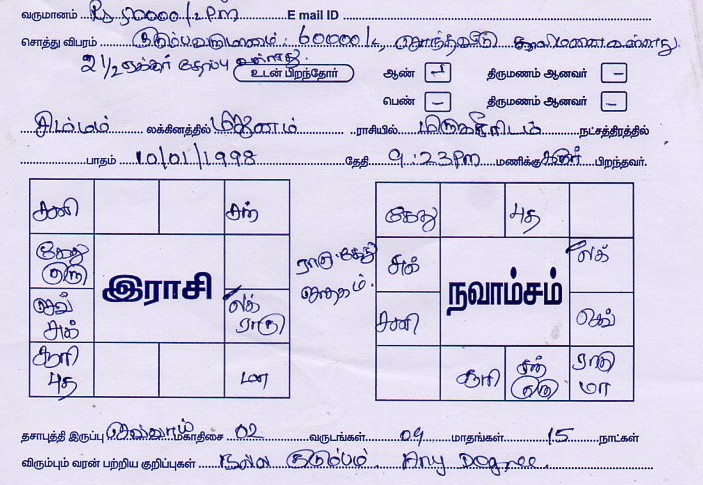 வருமானம் Rs 50000/. PM E mail ID
சொத்து விபரம் குடும்பவருமானம்: 60000/- சொந்தவீடு காலிமனை உள்ளது.
2 1/2 ஏக்கர் தோப்பு உள்ளது. உடன் பிறந்தோர் ஆண் திருமணம் ஆனவர் –
பெண் – திருமணம் ஆனவர் –
சிம்மம் லக்கினத்தில் மிதுனம் ராசியில் மிருகசீரிடம் நட்சத்திரத்தில்
பாதம் 10/01/1998 தேதி 9:23PM மணிக்கு பிறந்தவர்.
சனி சந் கேது புத
கேது குரு இராசி ராகு.கேது சுக் நவாம்சம் லக்
சுக் லக் ராகு ஜாதகம். சனி செவ்
சூரி புத மா சூரி சந் குரு ராகு மா
தசாபுத்தி இருப்பு செவ்வாய் மகாதிசை 02 வருடங்கள் 09 மாதங்கள் 15 நாட்கள்
விரும்பும் வரன் பற்றிய குறிப்புகள் நல்ல குடும்பம். Any Degree.